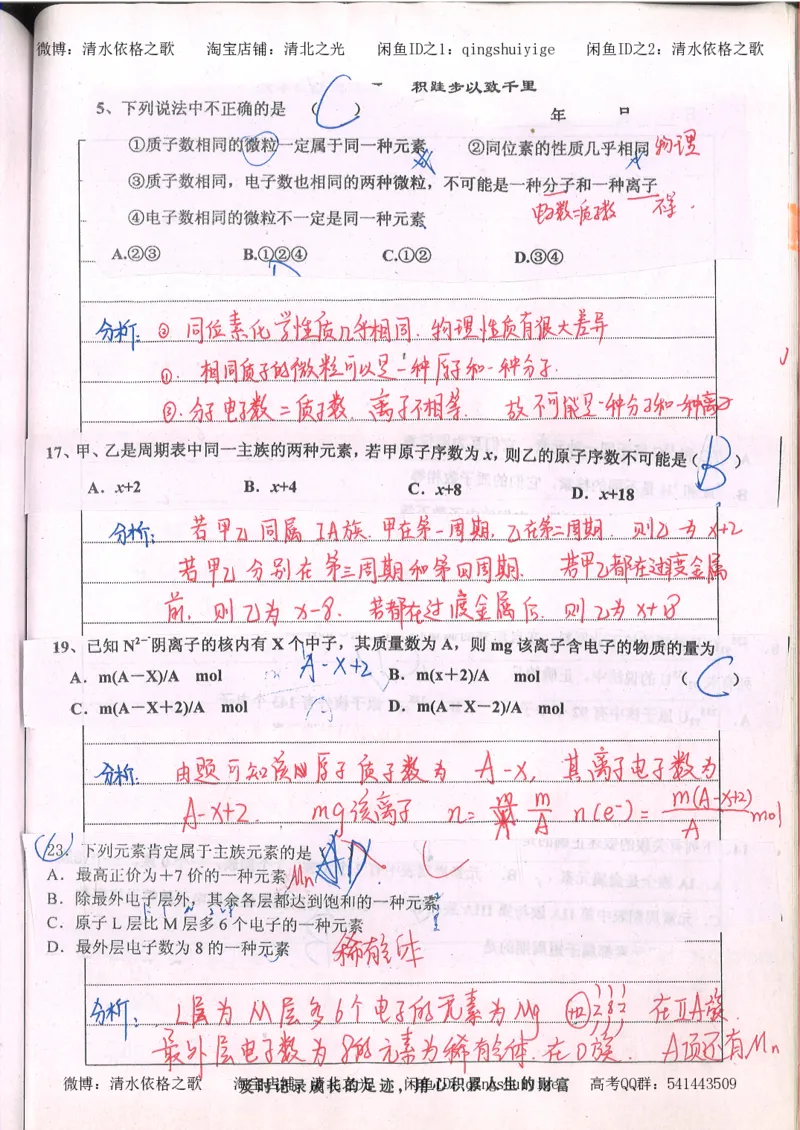 微博：清水依格之歌 淘宝店铺：清北之光 闲鱼ID之1：qingshuiyige 闲鱼ID之2：清水依格之歌
积跬步以致千里
5、下列说法中不正确的是 （ C ）
年 日
①质子数相同的微粒一定属于同一种元素 ②同位素的性质几乎相同 物理
③质子数相同，电子数也相同的两种微粒，不可能是一种分子和一种离子
电子数=质子数 不等.
④电子数相同的微粒不一定是同一种元素
A.②③ B.①②④ C.①② D.③④
分析: ② 同位素化学性质几乎相同. 物理性质有很大差异
①. 相同质子的微粒可以是一种原子和一种分子.
③.分子电子数=质子数. 离子不相等. 故不可能是一种分子和一种离子
17、甲、乙是周期表中同一主族的两种元素，若甲原子序数为 x，则乙的原子序数不可能是（ B ）
A．x+2 B．x+4 C．x+8 D．x+18
分析: 若甲乙同属 IA族. 甲在第一周期, 乙在第二周期. 则乙为 x+2
若甲乙分别在第三周期和第四周期. 若甲乙都在过度金属
前. 则乙为 x-8. 若都在过度金属后. 则乙为 x+18
19、已知 N²⁻阴离子的核内有 X 个中子，其质量数为 A，则 mg 该离子含电子的物质的量为
A-X+2
A．m(A－X)/A mol B．m(x＋2)/A mol （ C ）
C．m(A－X＋2)/A mol D．m(A－X－2)/A mol
分析: 由题可知该N原子质子数为 A-X, 其离子电子数为
A-X+2. mg该离子 n= m/A n(e⁻)= m(A-X+2)/A mol
23．下列元素肯定属于主族元素的是 C
A．最高正价为＋7 价的一种元素 Mn
B．除最外电子层外，其余各层都达到饱和的一种元素
C．原子 L 层比 M 层多 6 个电子的一种元素
D．最外层电子数为 8 的一种元素 稀有气体
分析: L层为 M层多6个电子的元素为Mg +12 2 8 2 在ⅡA族.
最外层电子数为8的元素为稀有气体. 在0族. A项还有Mn
及时记录成长的足迹，用心积累人生的财富
微博：清水依格之歌 淘宝店铺：清北之光 闲鱼ID之1：qingshuiyige 高考QQ群：541443509